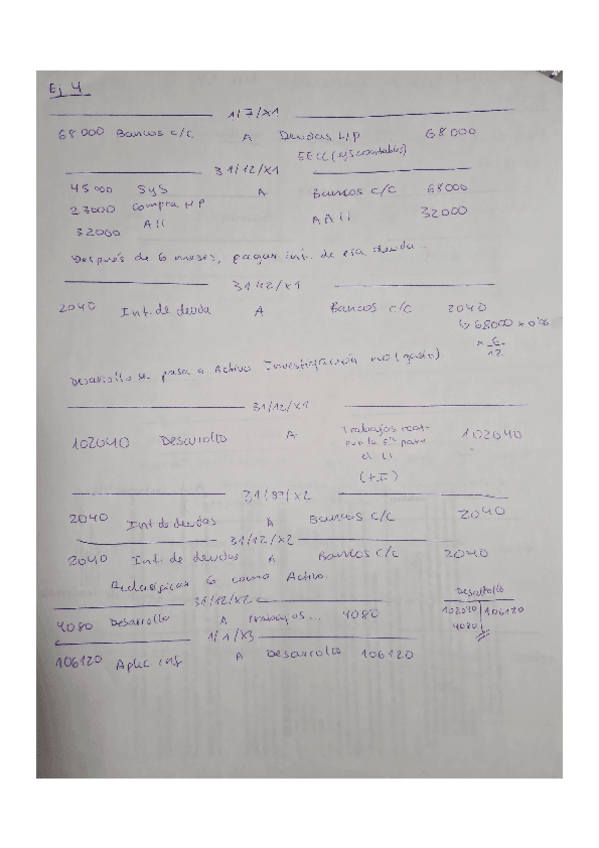 Ej 4
1/7/X1
68000 Bancos c/c A Deudas L/p 68000
EECC (ej5 contables)
31/12/X1
45000 SyS A Bancos c/c 68000
23000 Compra MP AAII 32000
32000 AII
Después de 6 meses, pagar int. de esa deuda
31/12/X1
2040 Int. de deuda A Bancos c/c 2040
↳ 68000 x 0'06
x 6/12
Desarrollo se pasa a Activo Investigación no (gasto)
31/12/X1
102040 Desarrollo A Trabajos 102040
para
el II
(+I)
31/07/X2
2040 Int de deudas A Bancos c/c 2040
31/12/X2
2040 Int. de deudas A Bancos c/c 2040
G como Activo.
31/12/X2
4080 Desarrollo A Trabajos... 4080
Desarrollo
102040 106120
4080
1/1/X3
106120 Aplic inf A Desarrollo 106120